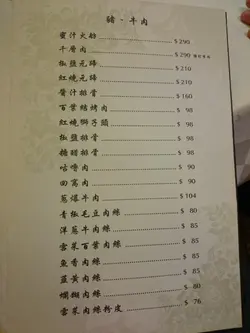 豬·牛肉
蜜汁火舫 $290
千層肉 $290
椒鹽元蹄 $210
紅燒元蹄 $210
醬汁排骨 $160
百葉結烤肉 $98
紅燒獅子頭 $98
椒鹽排骨 $98
糖醋排骨 $98
咕嚕肉 $90
回窩肉 $90
蔥爆牛肉 $104
青椒毛豆肉絲 $80
洋蔥牛肉絲 $85
雪菜百葉肉絲 $85
魚香肉絲 $85
韭黃肉絲 $85
爛糊肉絲 $80
雪菜肉絲粉皮 $76